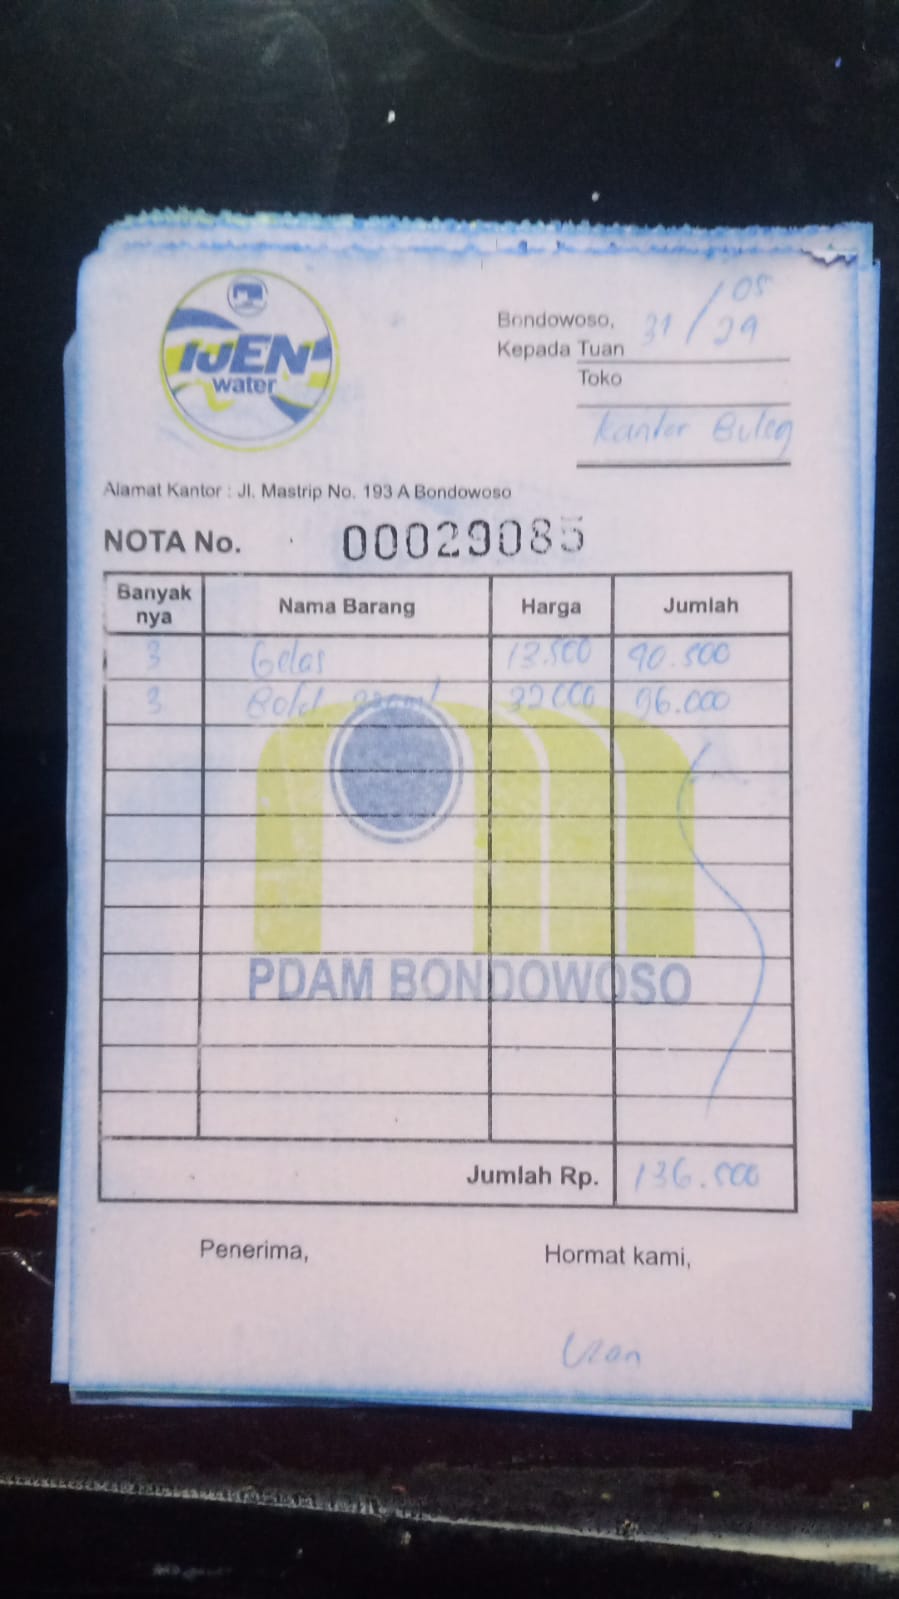 IJEN
water
Bondowoso, 31 / 05
29
Kepada Tuan
Toko
Kantor Buleg
Alamat Kantor : Jl. Mastrip No. 193 A Bondowoso
NOTA No. 00029085
Banyak nya Nama Barang Harga Jumlah
3 Gelas 13.500 40.500
3 220ml 32000 96.000
PDAM BONDOWOSO
Jumlah Rp. 136.500
Penerima, Hormat kami,